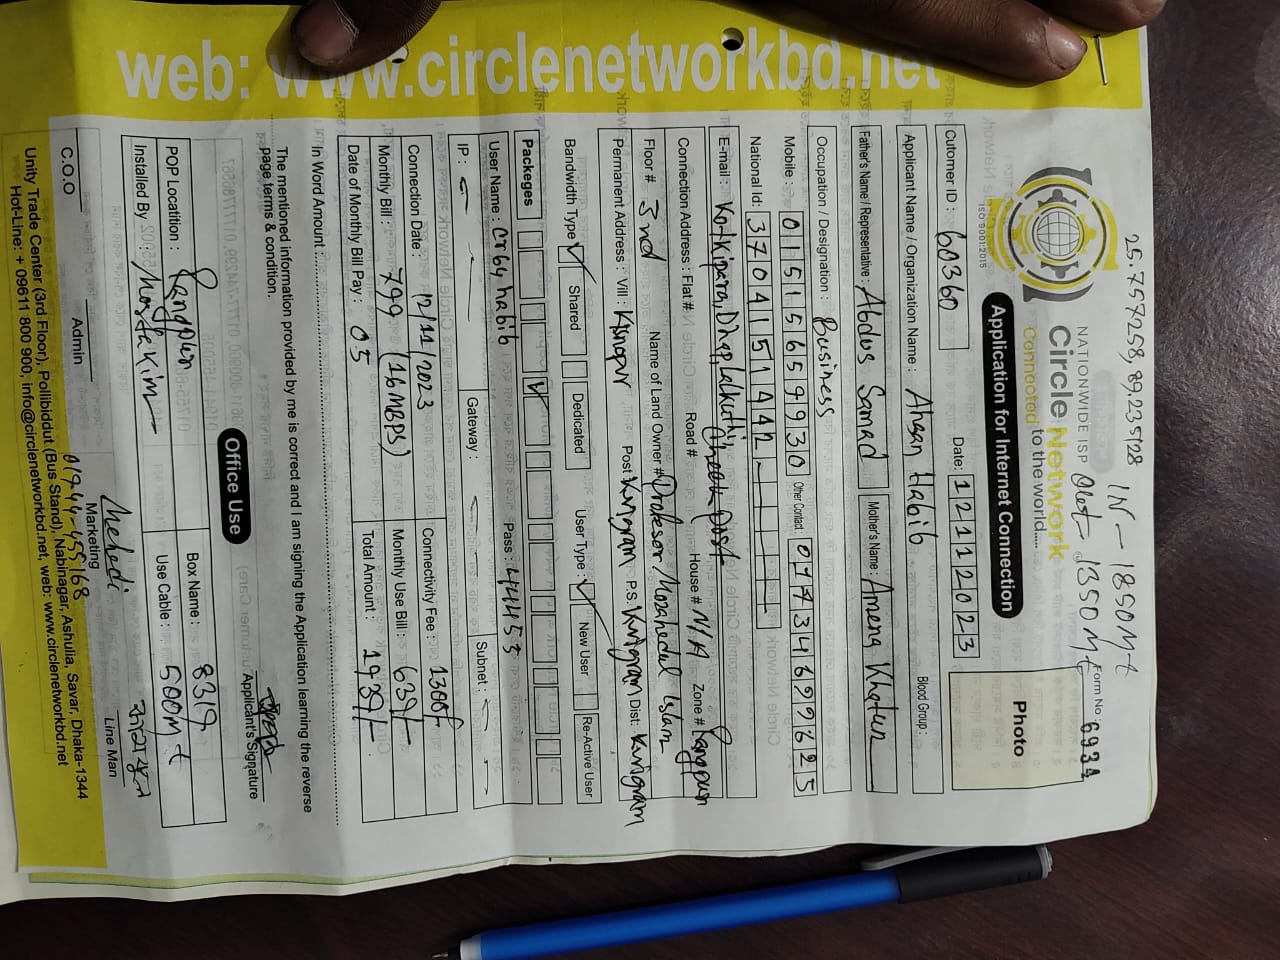 25.757258, 89.235128 IN - 1850Mt
out - 1350Mt
NATIONWIDE ISP
Circle Network
Connected to the world.....
ISO 9001:2015
Form No : 6934
Application for Internet Connection
Photo
Cutomer ID : 60360 Date: 12112023
Applicant Name / Organization Name : Ahsan Habib Blood Group :
Father's Name / Representative : Abdus Samad Mother's Name : Amena Khatun
Occupation / Designation : Business
Mobile : 01515659930 Other Contact : 07734699625
National Id: 3704151442
E-mail : Kotkipara, Dhap, Lalkuthi, Cheek Post
Connection Address : Flat# Road# House # N/A Zone # Rangpur
Floor# 3nd Name of Land Owner# Profesor Mozahedul Islam
Permanent Address : Vill : Post Kurigram P.S. Kurigram Dist: Kurigram
Bandwidth Type Shared Dedicated User Type : New User Re-Active User
Packeges
User Name : cr64 habib Pass : 44453
IP : Gateway : Subnet :
Connection Date : 12/11/2023 Connectivity Fee : 1300/-
Monthly Bill : 799 (16 MBPS) Monthly Use Bill : 639/-
Date of Monthly Bill Pay : 05 Total Amount : 1939/-
In Word Amount :
The mentioned information provided by me is correct and I am signing the Application learning the reverse
page terms & condition.
Applicant's Signature
Office Use
POP Locatition : Rangpur Box Name : 8319
Installed By : Mostakim Use Cable : 500mt
Mehedi
C.O.O Admin Marketing Line Man
01944-455168
Unity Trade Center (3rd Floor), Pollibiddut (Bus Stand), Nabinagar, Ashulia, Savar, Dhaka-1344
Hot-Line: + 09611 800 900, info@circlenetworkbd.net, web: www.circlenetworkbd.net
web: www.circlenetworkbd.net